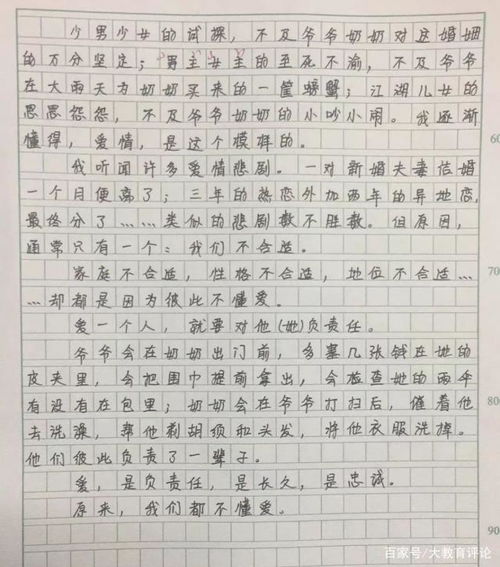 少男少女的试探，不及爷爷奶奶对这婚姻
的万分坚定；男主女主的至死不渝，不及爷爷
在大雨天为奶奶买来的一筐螃蟹；江湖儿女的
恩恩怨怨，不及爷爷奶奶的小吵小闹。我逐渐
懂得，爱情，是这个模样的。
60
我听闻许多爱情悲剧。一对新婚夫妻结婚
一个月便离了；三年的热恋外加两年的异地恋，
最终分了……类似的悲剧数不胜数。但原因，
通常只有一个：我们不合适。
家庭不合适，性格不合适，地位不合适…
70
…却都是因为彼此不懂爱。
爱一个人，就要对他(她)负责任。
爷爷会在奶奶出门前，多塞几张钱在她的
皮夹里，会把围巾提前拿出，会检查她的雨伞
有没有在包里；奶奶会在爷爷打扫后，催着他
80
去洗澡，帮他剃胡须和头发，将他衣服洗掉。
他们彼此负责了一辈子。
爱，是负责任，是长久，是忠诚。
原来，我们都不懂爱。
90
百家号/大教育评论